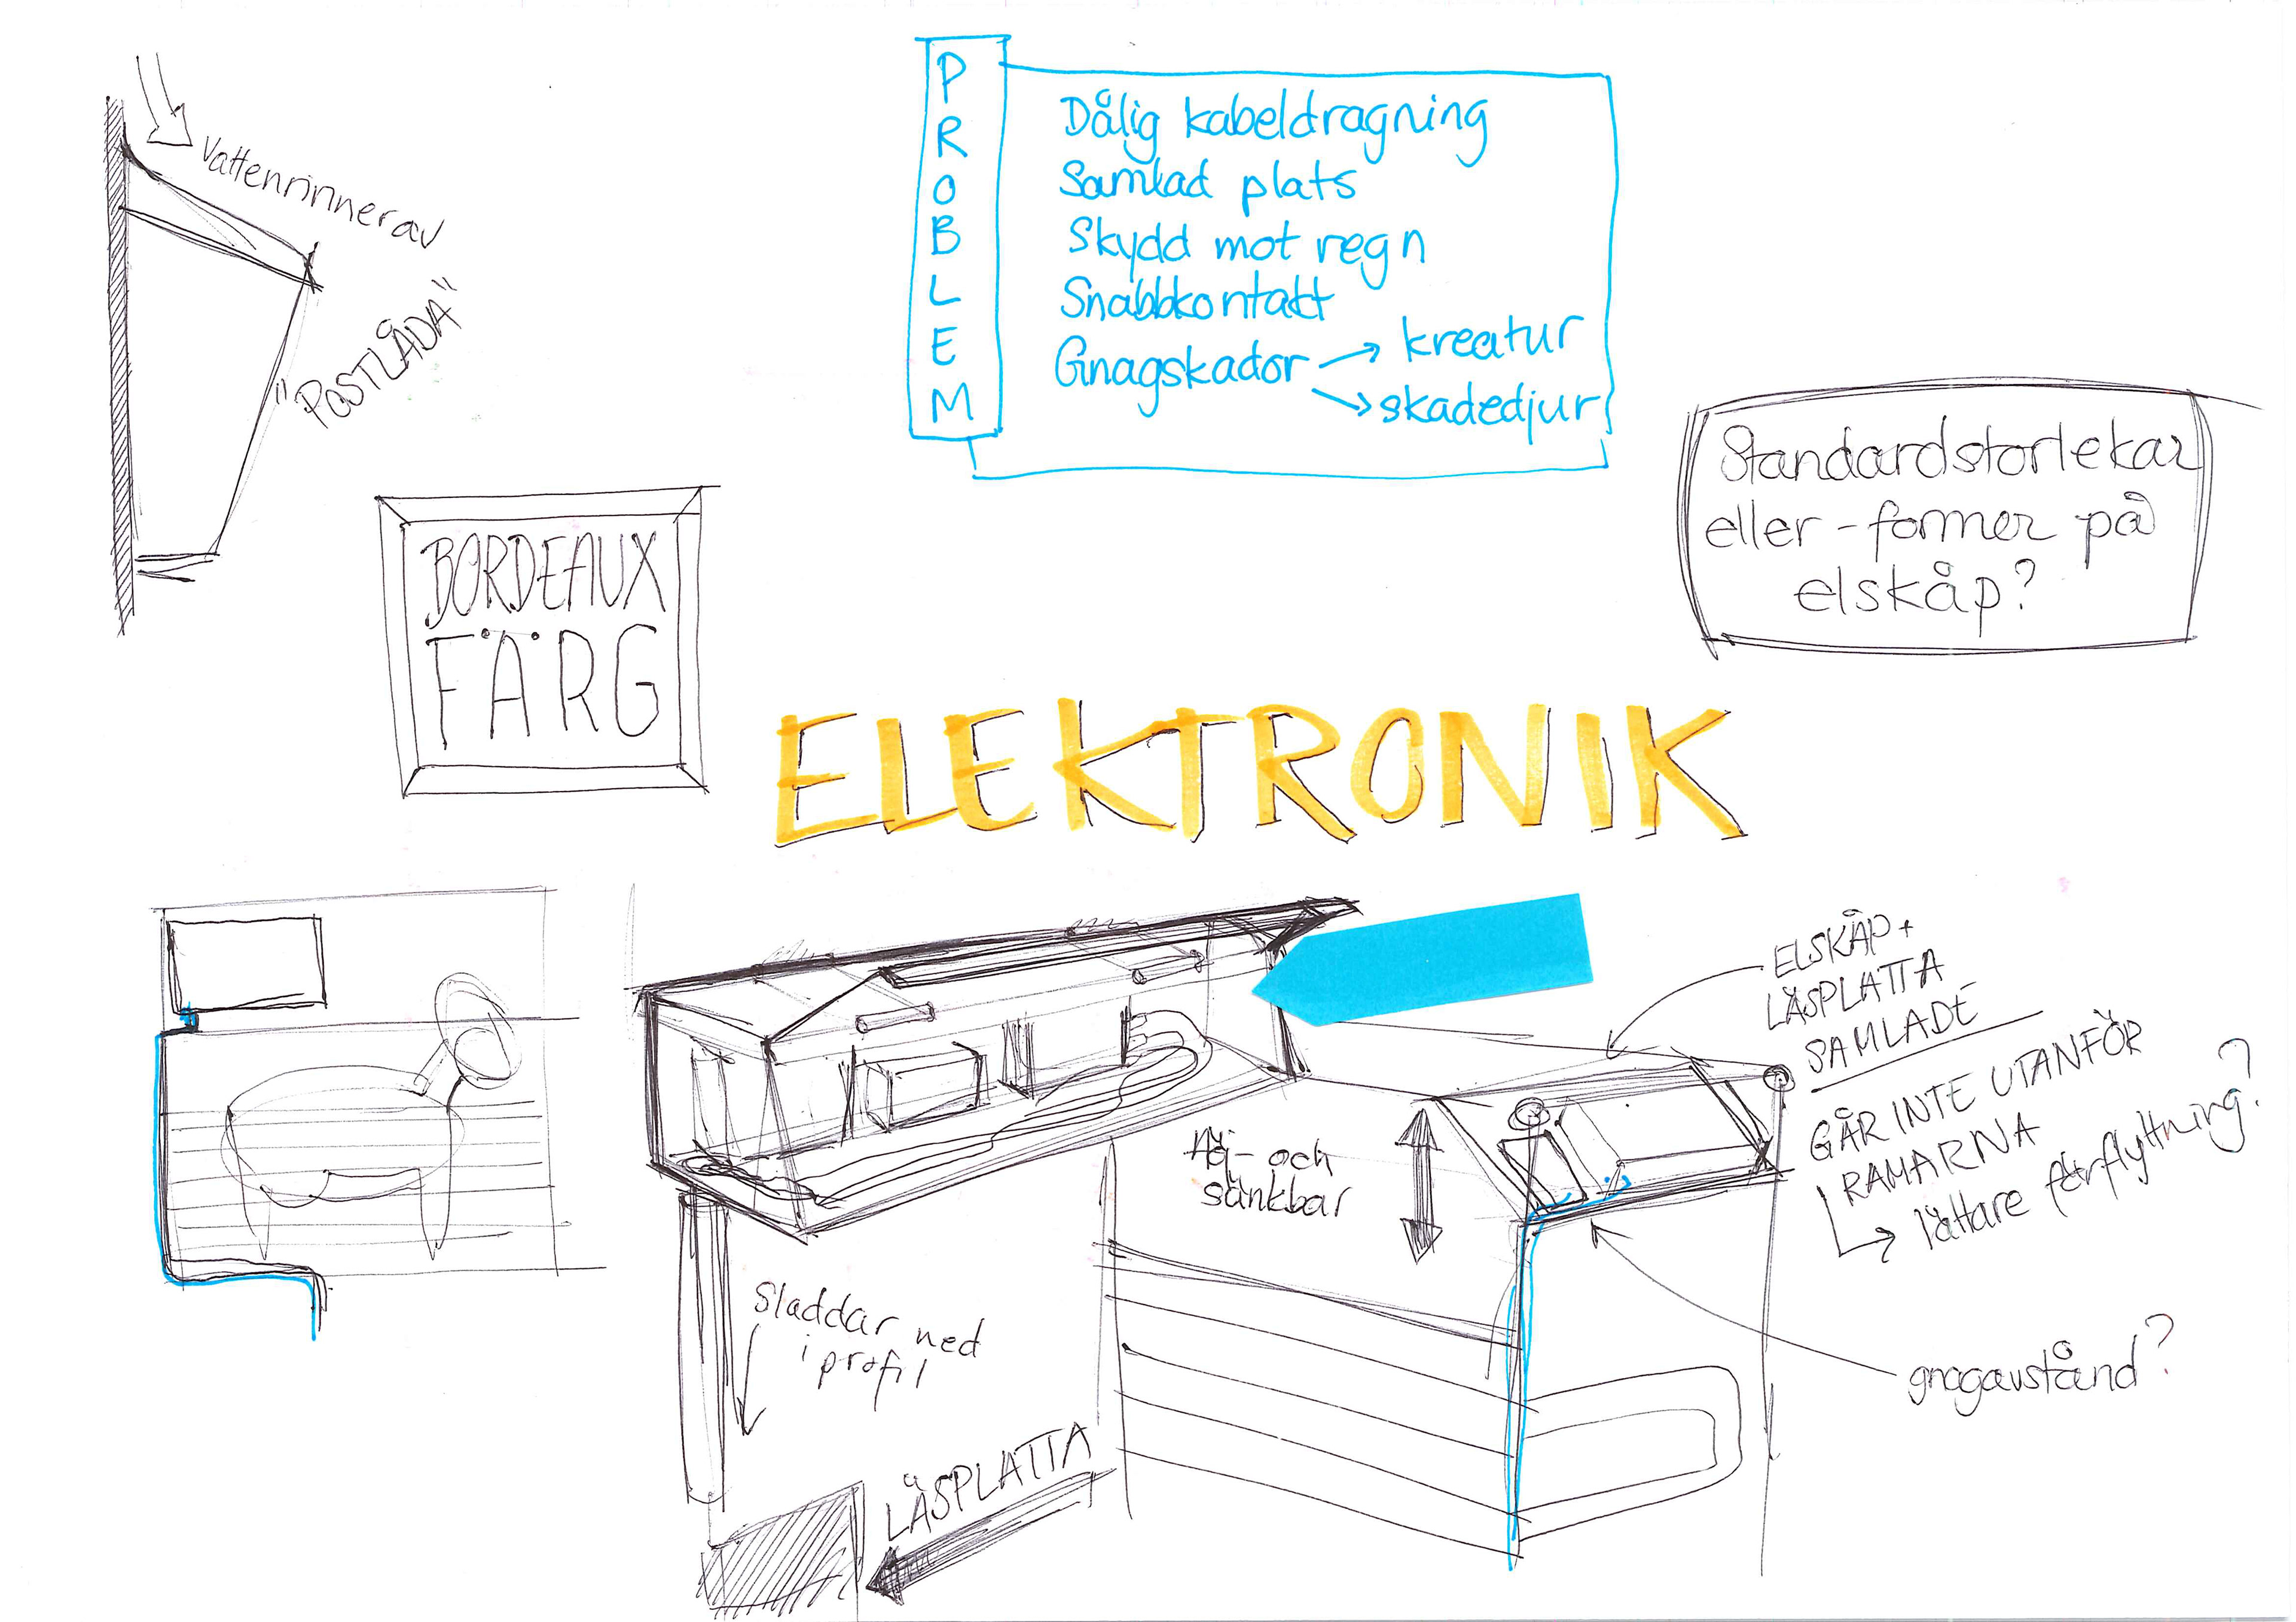 PROBLEM
Dålig kabeldragning
Samlad plats
Skydd mot regn
Snabbkontakt
Gnagskador → kreatur
→ skadedjur
Vattenrinner av
"POSTLÅDA"
BORDEAUX
FÄRG
Standardstorlekar
eller -former på
elskåp?
ELEKTRONIK
ELSKÅP +
LÄSPLATTA
SAMLADE
GÅR INTE UTANFÖR
RAMARNA
→ lättare förflyttning?
Höj- och
sänkbar
Sladdar ned
i profil
LÄSPLATTA
gnagavstånd?